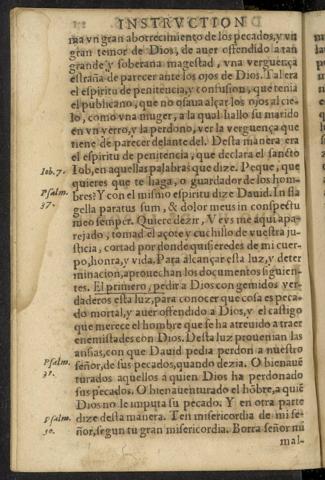 INSTRVCTION
ma vn gran aborrecimiento de los pecados, y vn
gran temor de Dios, de auer offendido a tan
grande y soberana magestad, vna verguença
estraña de parecer ante los ojos de Dios. Tal era
el espiritu de penitencia, y confusion, que tenia
el publicano, que no osaua alçar los ojos al cie-
lo, como vna muger, a la qual hallo su marido
en vn yerro, y la perdono, ver la verguença que
tiene de parecer delante del. Desta manera era
el espiritu de penitencia, que declara el sancto
Iob. 7. Iob, en aquellas palabras que dize. Peque, que
quieres que te haga, o guardador de los hom-
Psalm. bres? Y con el mismo espiritu dize Dauid. In fla
37. gella paratus sum, & dolor meus in conspectu
meo semper. Quiere dezir, Veys me aqui apa-
rejado, tomad el açote y cuchillo de vuestra ju-
sticia, cortad por donde quisieredes de mi cuer-
po, honra, y vida. Para alcançar esta luz, y deter
minacion, aprouechan los documentos siguien-
tes. El primero, pedir a Dios con gemidos ver-
daderos esta luz, para conocer que cosa es peca-
do mortal, y auer offendido a Dios, y el castigo
que merece el hombre que se ha atreuido a traer
enemistades con Dios. Desta luz prouenian las
ansias, con que Dauid pedia perdon a nuestro
Psalm. señor, de sus pecados, quando dezia. O bienaue
31. turados aquellos a quien Dios ha perdonado
sus pecados. O bienauenturado el hõbre, a quiẽ
Dios no le imputa su pecado. Y en otra parte
Psalm. dize desta manera. Ten misericordia de mi se-
50. ñor, segun tu gran misericordia. Borra señor mi
mal-